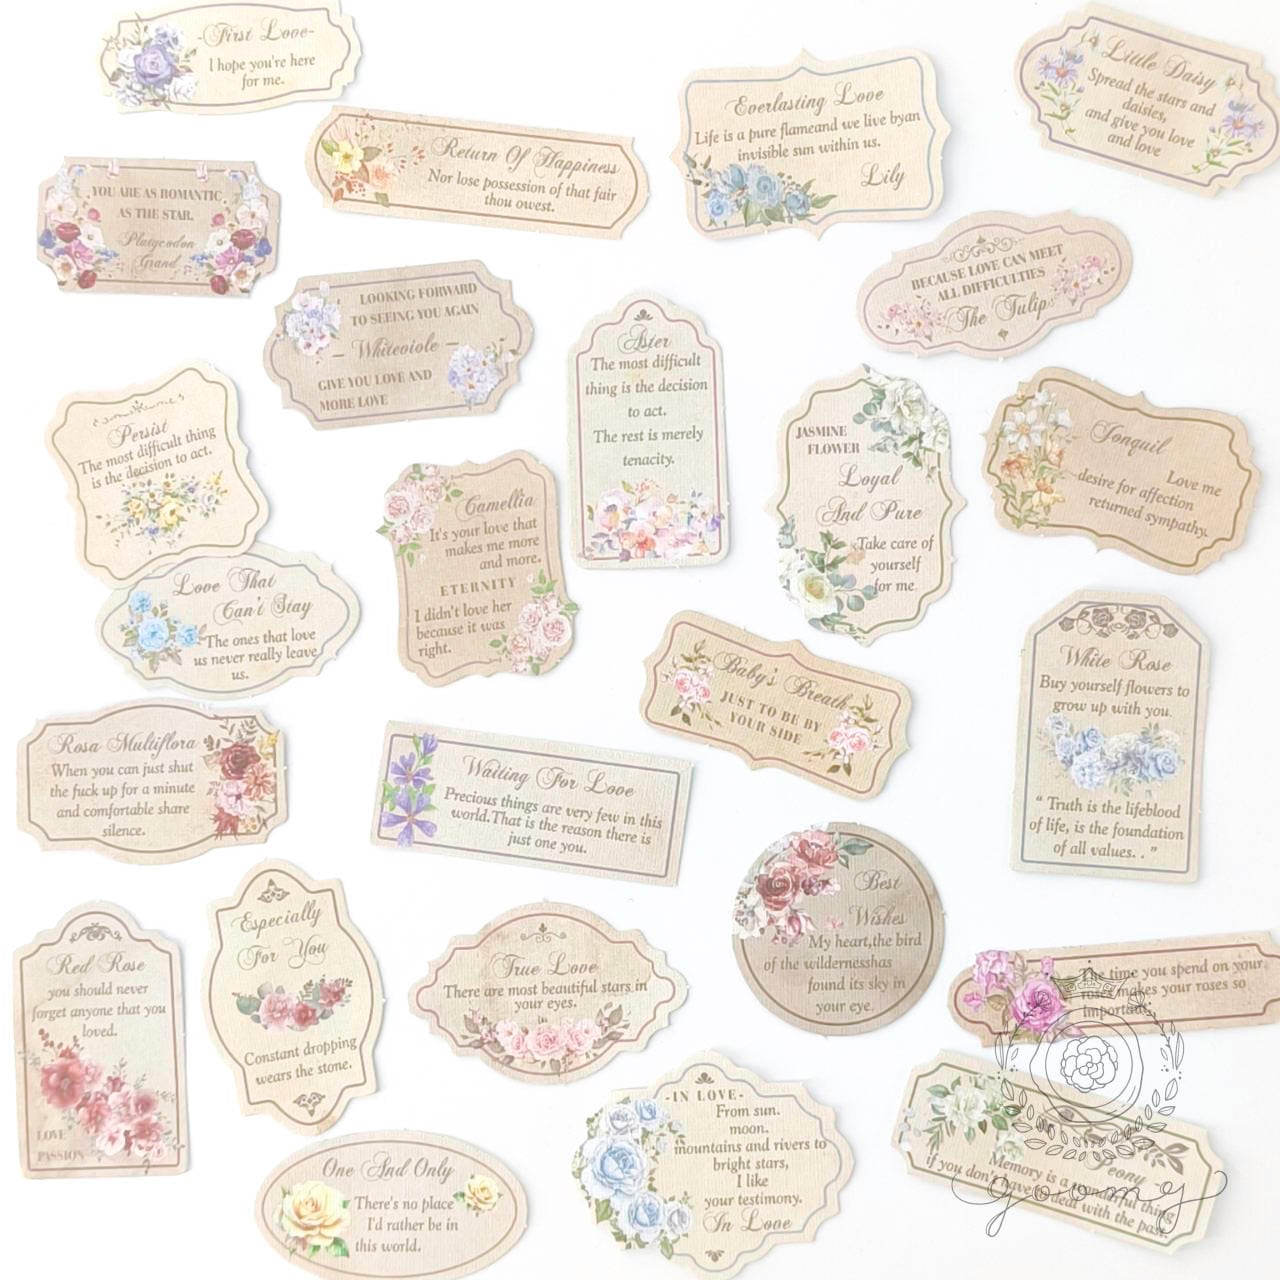 -First Love-
I hope you're here
for me.
Return Of Happiness
Nor lose possession of that fair
thou owest.
Everlasting Love
Life is a pure flameand we live byan
invisible sun within us.
Lily
Little Daisy
Spread the stars and
daisies,
and give you love
and love
YOU ARE AS ROMANTIC
AS THE STAR.
Platycodon
Grand
LOOKING FORWARD
TO SEEING YOU AGAIN
- Whiteviole -
GIVE YOU LOVE AND
MORE LOVE
BECAUSE LOVE CAN MEET
ALL DIFFICULTIES
The Tulip
Aster
The most difficult
thing is the decision
to act.
The rest is merely
tenacity.
Persist
The most difficult thing
is the decision to act.
Camellia
It's your love that
makes me more
and more.
ETERNITY
I didn't love her
because it was
right.
JASMINE
FLOWER
Loyal
And Pure
Take care of
yourself
for me.
Jonquil
Love me
desire for affection
returned sympathy.
Love That
Can't Stay
The ones that love
us never really leave
us.
Baby's Breath
JUST TO BE BY
YOUR SIDE
White Rose
Buy yourself flowers to
grow up with you.
“ Truth is the lifeblood
of life, is the foundation
of all values. . ”
Rosa Multiflora
When you can just shut
the fuck up for a minute
and comfortable share
silence.
Waiting For Love
Precious things are very few in this
world.That is the reason there is
just one you.
Best
Wishes
My heart,the bird
of the wildernesshas
found its sky in
your eye.
Red Rose
you should never
forget anyone that you
loved.
LOVE
PASSION
Especially
For You
Constant dropping
wears the stone.
True Love
There are most beautiful stars in
your eyes.
The time you spend on your
roses makes your roses so
important.
One And Only
There's no place
I'd rather be in
this world.
-IN LOVE-
From sun.
moon.
mountains and rivers to
bright stars,
I like
your testimony.
In Love
Peony
Memory is a wonderful thing
if you don't have to deal with the past.
goomg